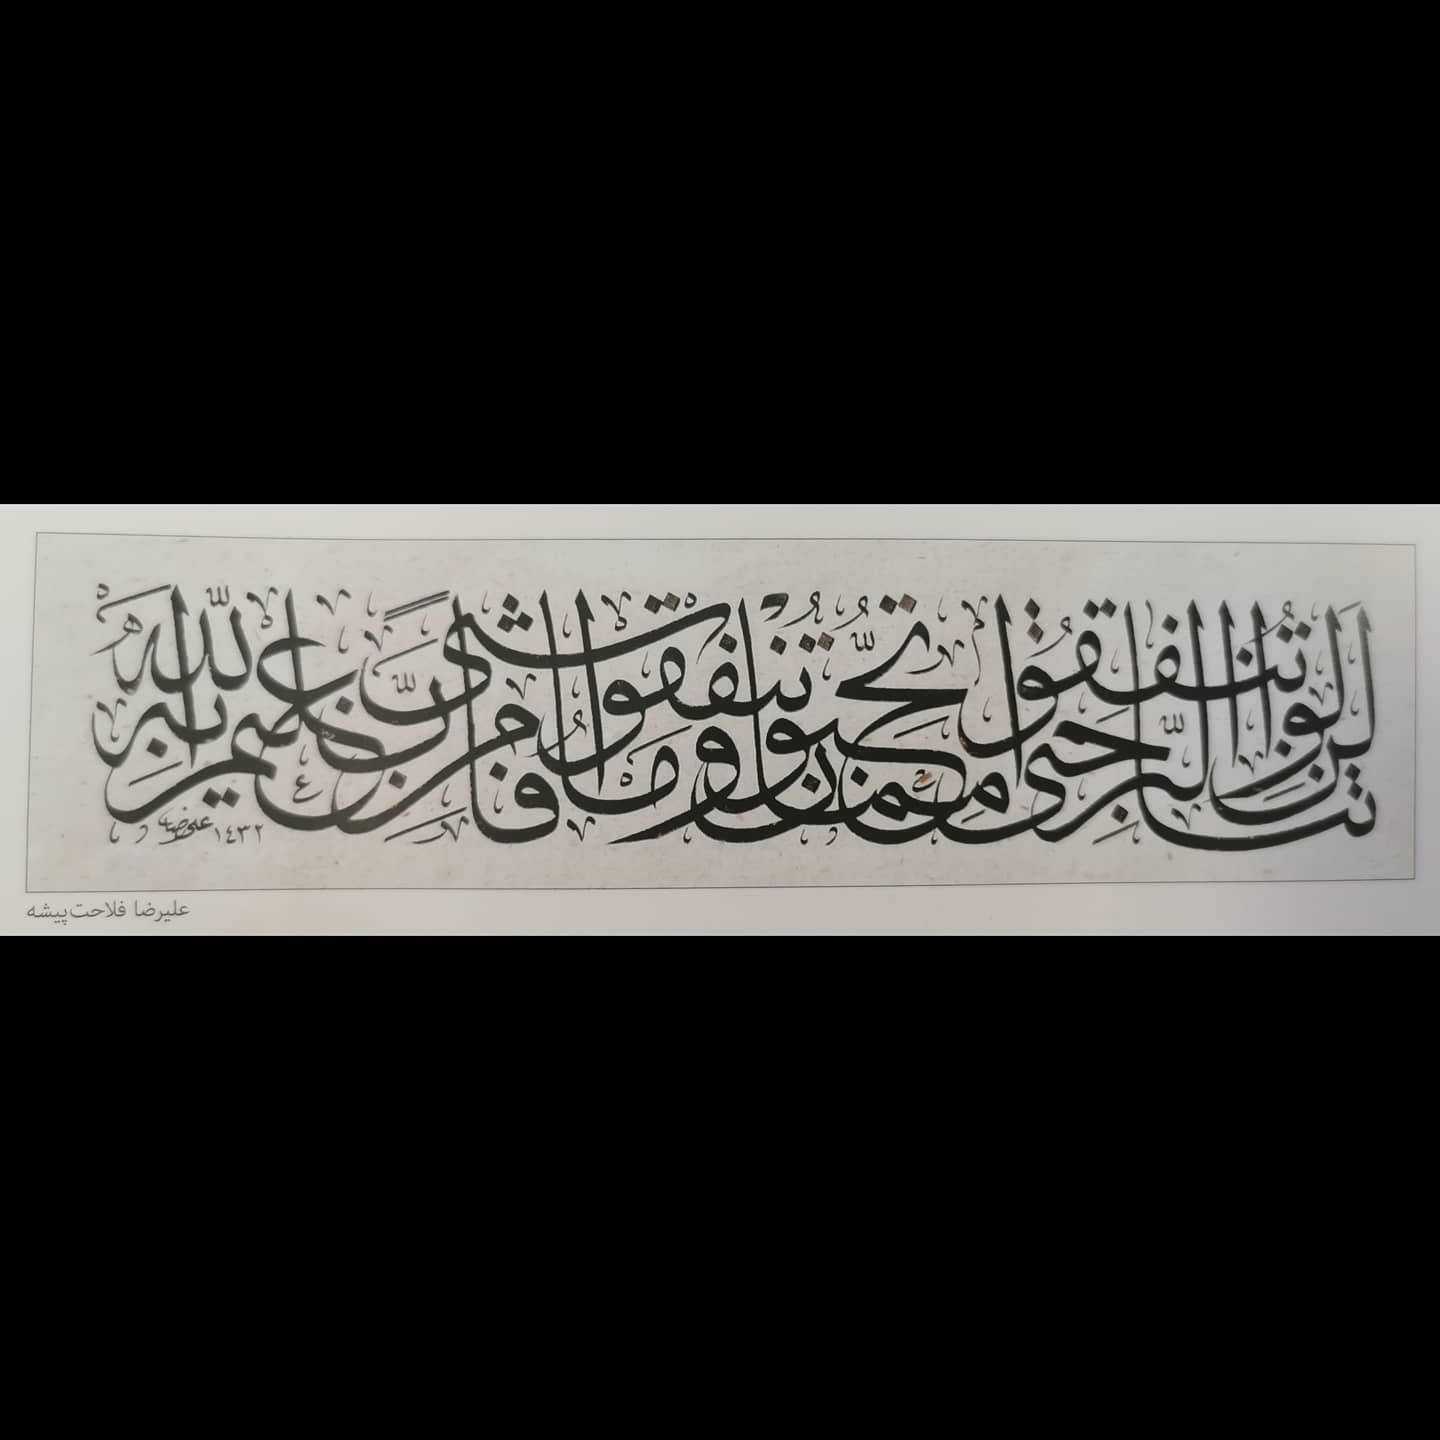 لَن تَنَالُوا الْبِرَّ حَتَّى تُنفِقُوا مِمَّا تُحِبُّونَ وَمَا تُنفِقُوا مِن شَيْءٍ فَإِنَّ اللَّهَ بِهِ عَلِيمٌ
١٤٣٢
علیرضا فلاحت‌پیشه